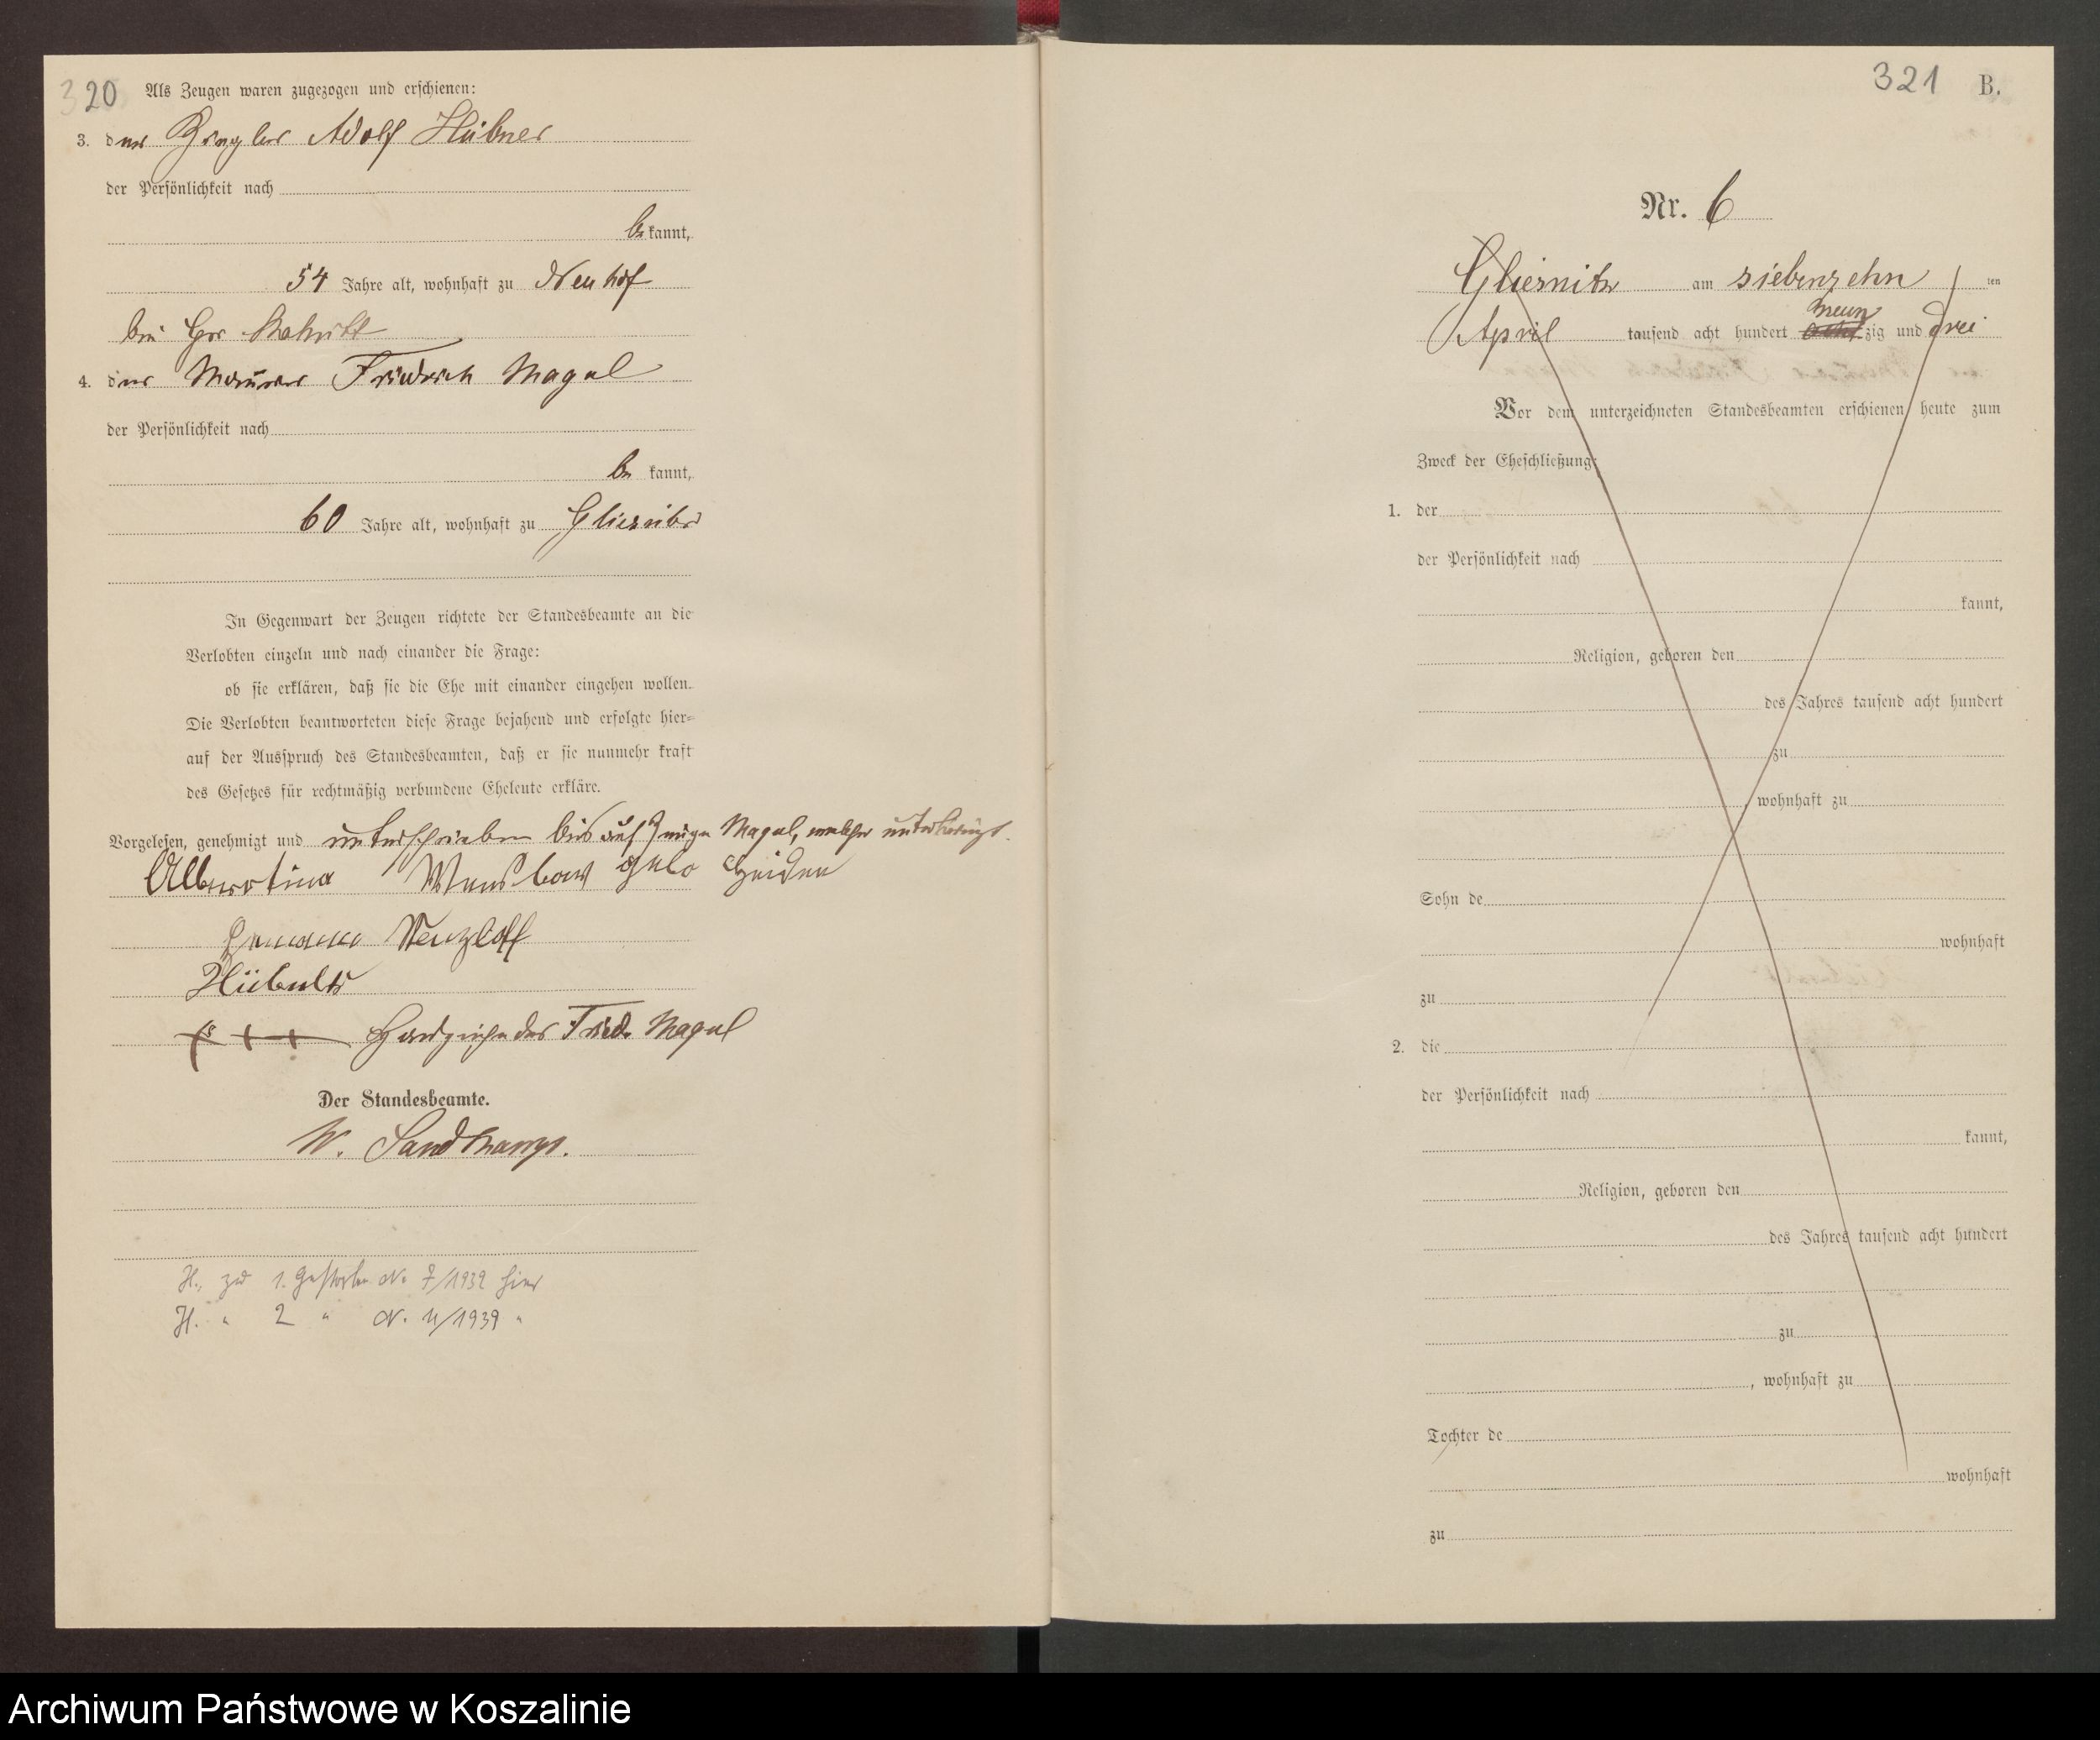 320 Als Zeugen waren zugezogen und erschienen:
3. der Ziegler Adolf Hübner
der Persönlichkeit nach
be kannt,
54 Jahre alt, wohnhaft zu Neuhof
bei
4. der Maurer Friedrich Magul
der Persönlichkeit nach
be kannt,
60 Jahre alt, wohnhaft zu Gliesnitz
In Gegenwart der Zeugen richtete der Standesbeamte an die
Verlobten einzeln und nach einander die Frage:
ob sie erklären, daß sie die Ehe mit einander eingehen wollen.
Die Verlobten beantworteten diese Frage bejahend und erfolgte hier-
auf der Ausspruch des Standesbeamten, daß er sie nunmehr kraft
des Gesetzes für rechtmäßig verbundene Eheleute erkläre.
Vorgelesen, genehmigt und unterschrieben bis auf Zeuge Magul, welcher unterkreuzt.
Albertine geb
Hübner
+++ Handzeichen des Fried. Magul
Der Standesbeamte.
W.
H. zu 1. Gestorben Nr. 7/1939 hier
H. " 2 " Nr. 4/1939 "
321 B.
Nr. 6
Gliesnitz am siebenzehn ten
April tausend acht hundert neun zig und drei
Vor dem unterzeichneten Standesbeamten erschienen heute zum
Zweck der Eheschließung:
1. der
der Persönlichkeit nach
kannt,
Religion, geboren den
des Jahres tausend acht hundert
zu
, wohnhaft zu
Sohn de
wohnhaft
zu
2. die
der Persönlichkeit nach
kannt,
Religion, geboren den
des Jahres tausend acht hundert
zu
, wohnhaft zu
Tochter de
wohnhaft
zu
Archiwum Państwowe w Koszalinie